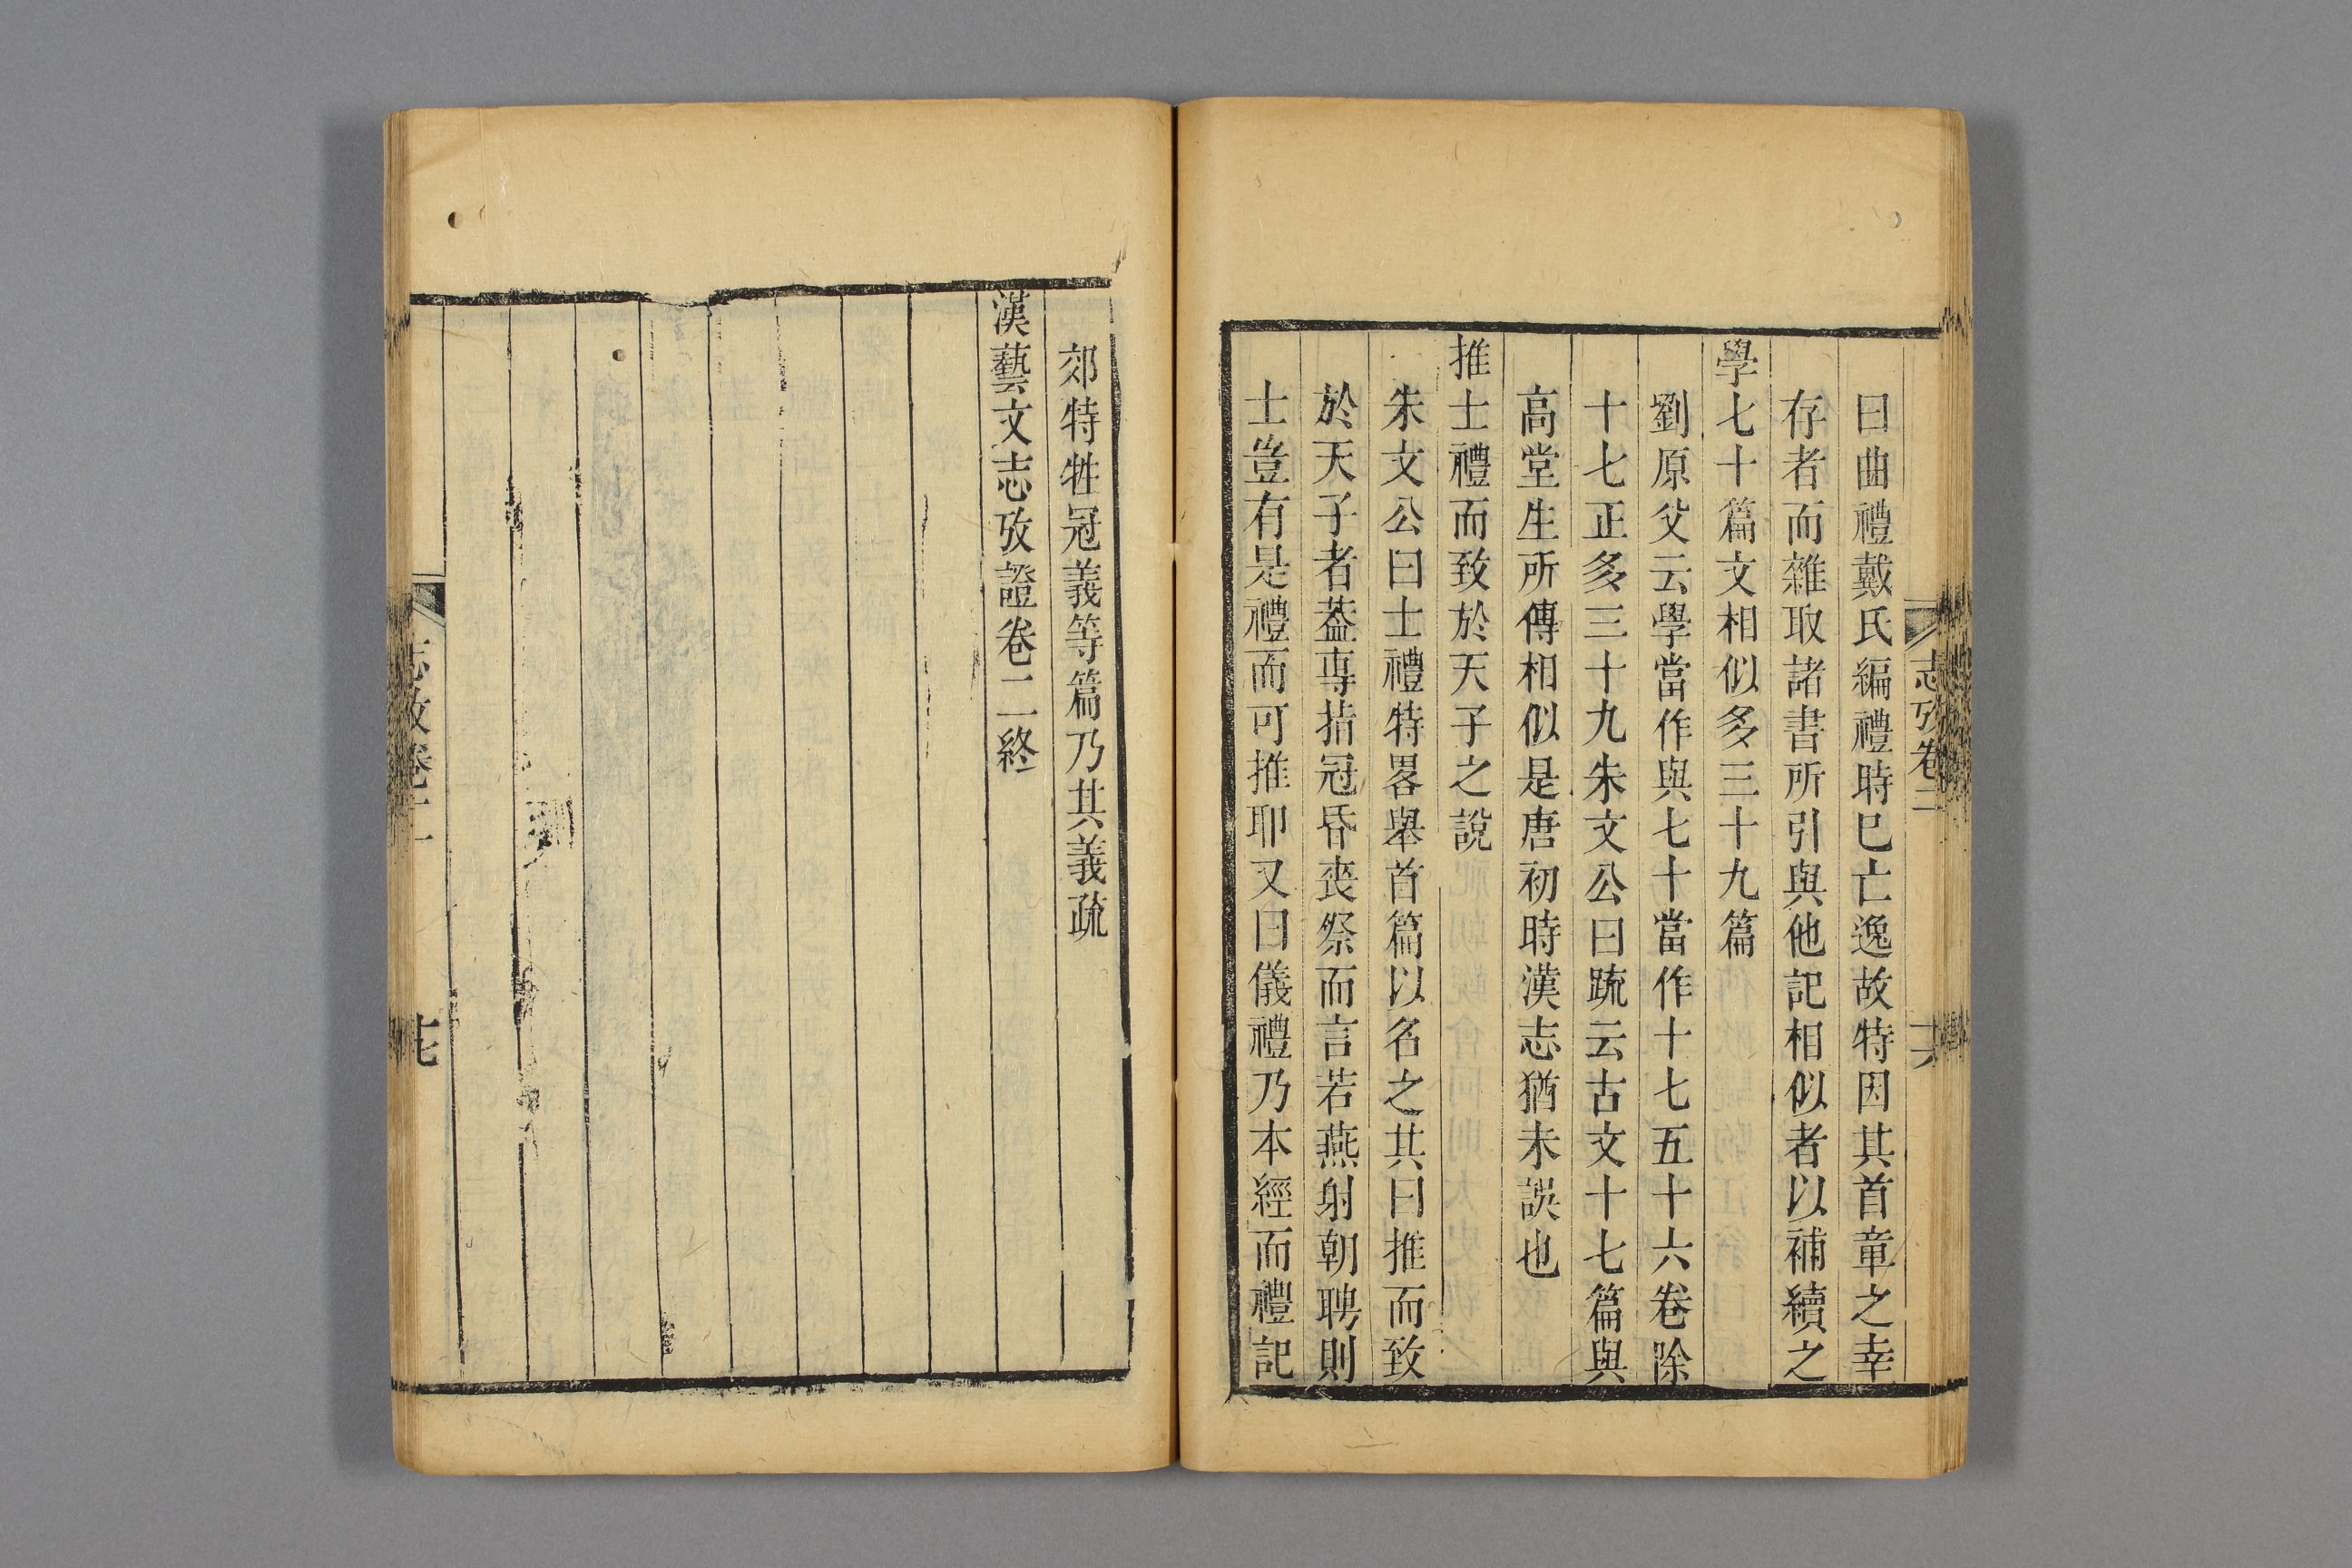 志攷卷二
曰曲禮戴氏編禮時已亡逸故特因其首章之幸
存者而雜取諸書所引與他記相似者以補續之
學七十篇文相似多三十九篇
劉原父云學當作與七十當作十七五十六卷除
十七正多三十九朱文公曰䟽云古文十七篇與
高堂生所傳相似是唐初時漢志猶未誤也
推士禮而致於天子之說
朱文公曰士禮特畧舉首篇以名之其曰推而致
於天子者葢専指冠昏喪祭而言若燕射朝聘則
士豈有是禮而可推耶又曰儀禮乃本經而禮記
郊特牲冠義等篇乃其義疏
漢藝文志攷證卷二終